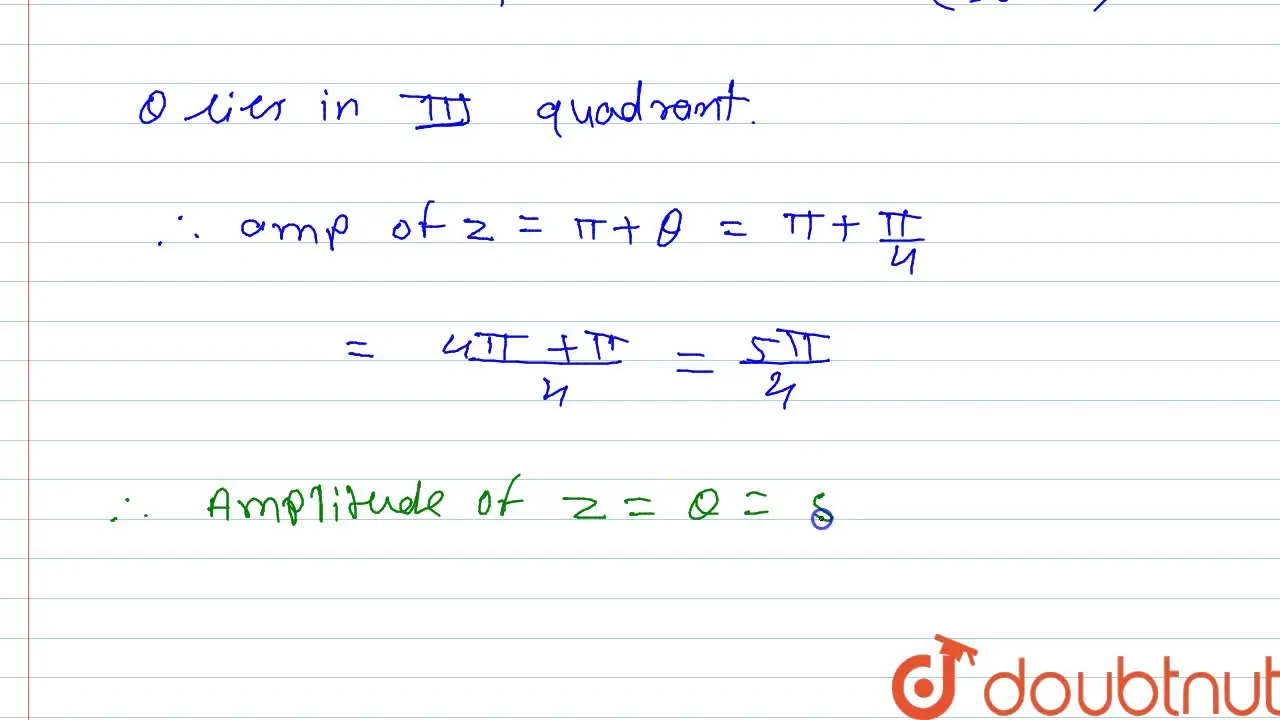 θ lies in III quadrant.
∴ amp of z = π + θ = π + π/4
= 4π + π/4 = 5π/4
∴ Amplitude of z = θ = 5
doubtnut